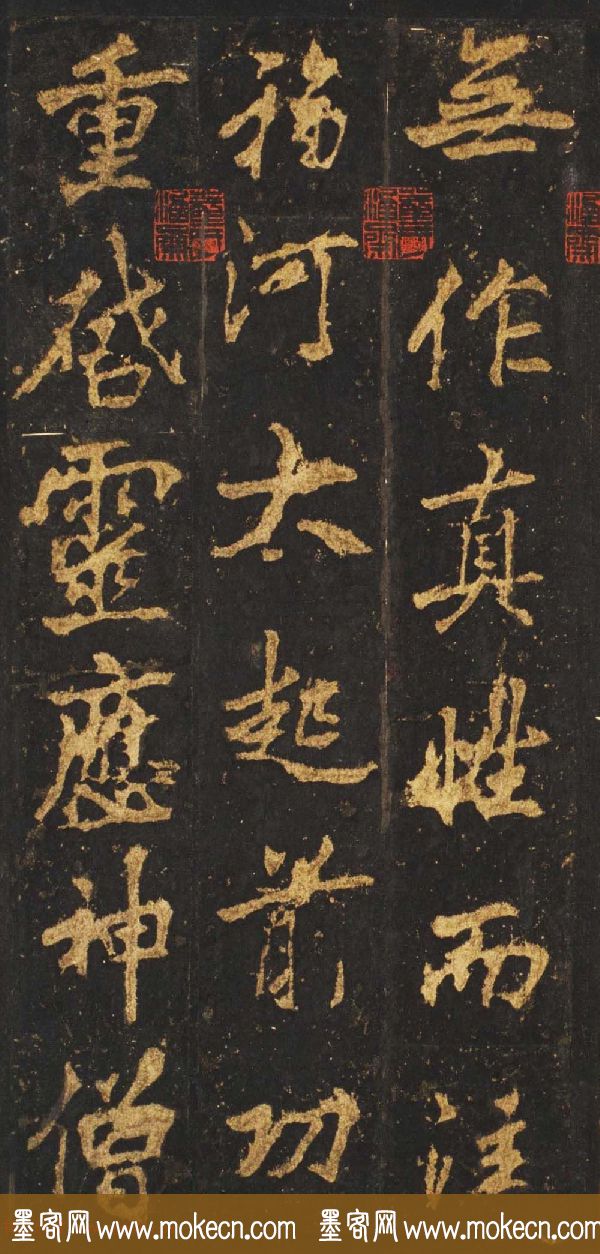 無作真性而注
福河大起前功
重啓靈應神僧
墨客网 www.mokecn.com 墨客网 www.mokecn.com